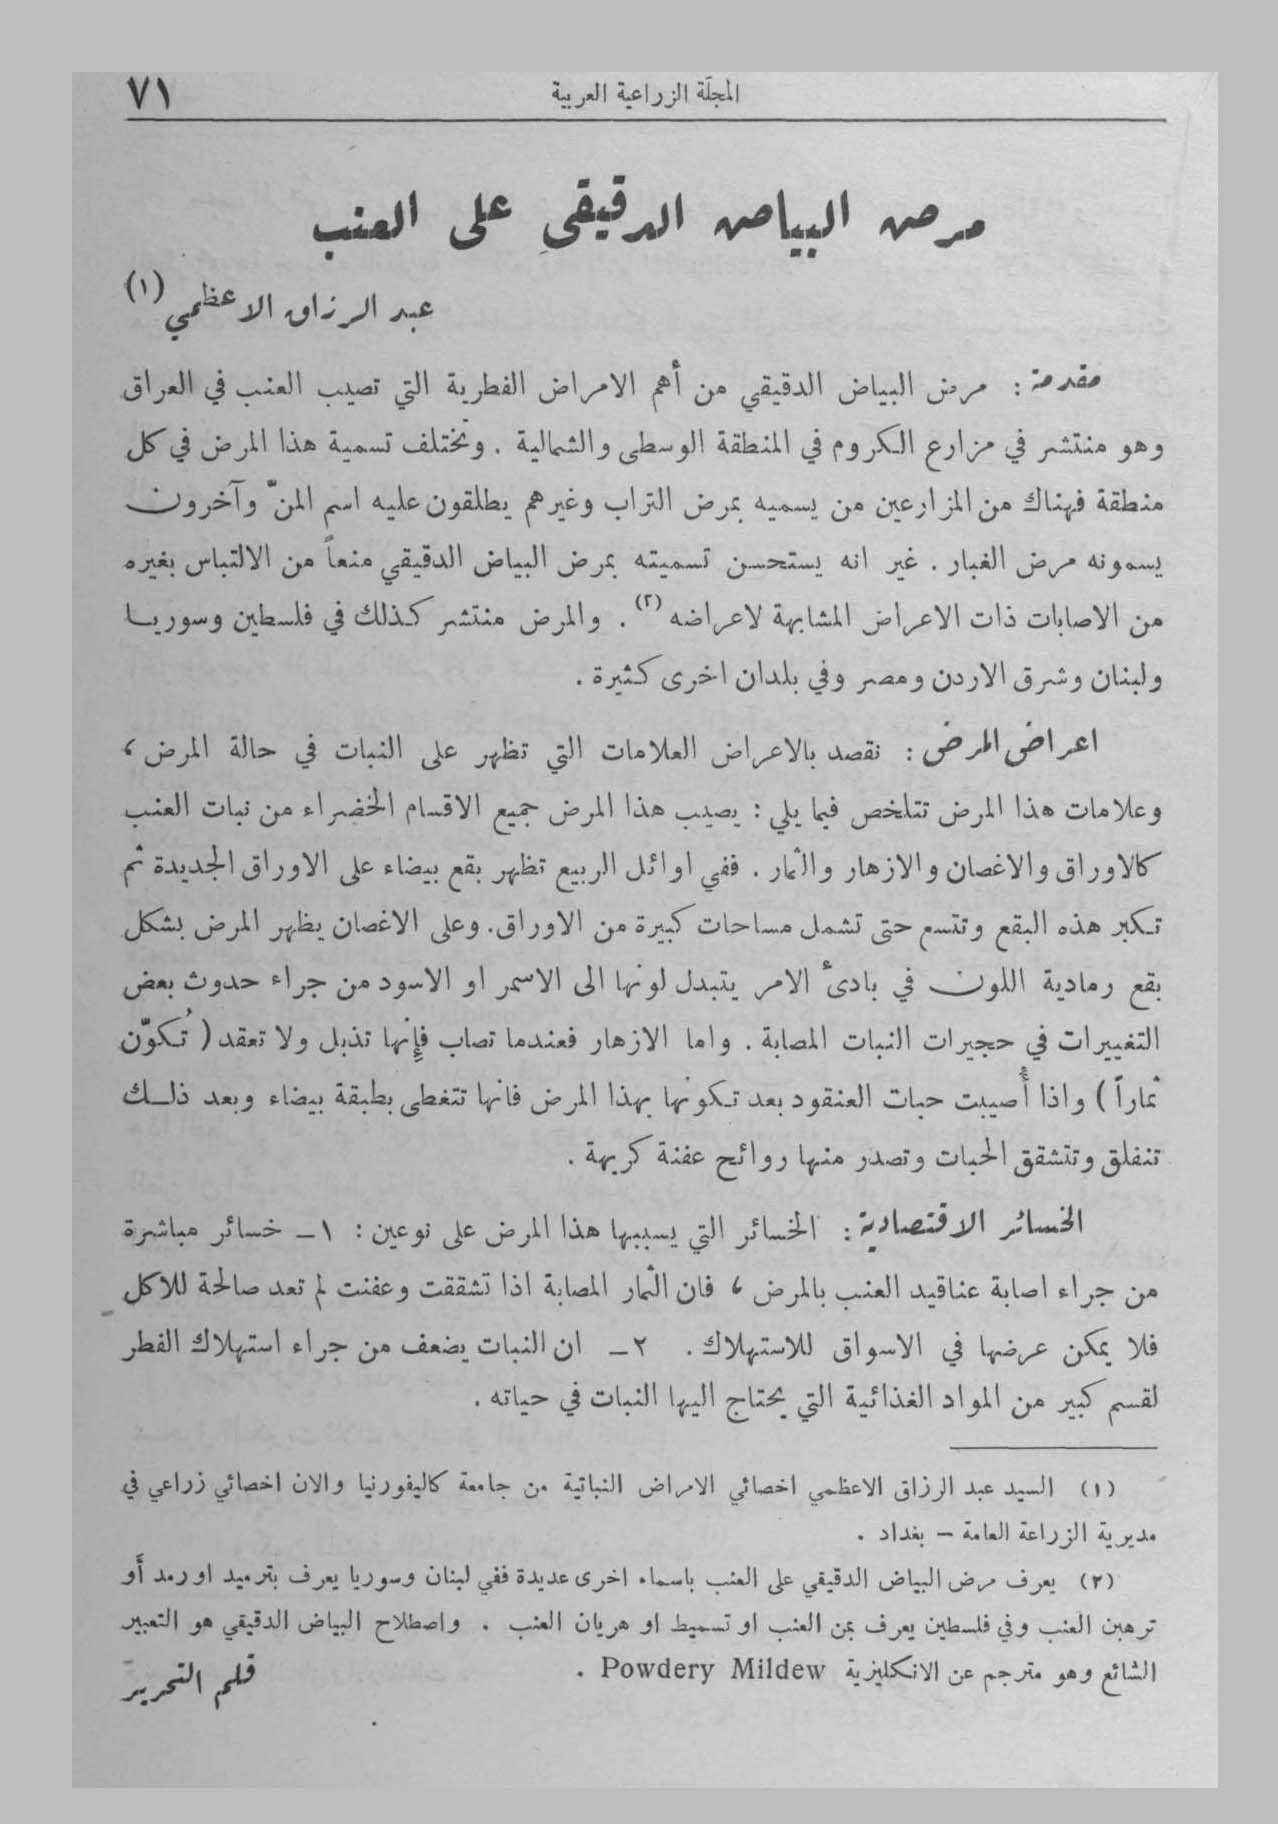 المجلّة الزراعية العربية
٧١
مرض البياض الدقيقي على العنب
عبد الرزاق الاعظمي (١)
مقدمة : مرض البياض الدقيقي من أهم الامراض الفطرية التي تصيب العنب في العراق
وهو منتشر في مزارع الكروم في المنطقة الوسطى والشمالية . وتختلف تسمية هذا المرض في كل
منطقة فهناك من المزارعين من يسميه بمرض التراب وغيرهم يطلقون عليه اسم المنّ وآخرون
يسمونه مرض الغبار . غير انه يستحسن تسميته بمرض البياض الدقيقي منعاً من الالتباس بغيره
من الاصابات ذات الاعراض المشابهة لاعراضه (٢) . والمرض منتشر كذلك في فلسطين وسوريا
ولبنان وشرق الاردن ومصر وفي بلدان اخرى كثيرة .
اعراض المرض : نقصد بالاعراض العلامات التي تظهر على النبات في حالة المرض ،
وعلامات هذا المرض تتلخص فيما يلي : يصيب هذا المرض جميع الاقسام الخضراء من نبات العنب
كالاوراق والاغصان والازهار والثمار . ففي اوائل الربيع تظهر بقع بيضاء على الاوراق الجديدة ثم
تكبر هذه البقع وتتسع حتى تشمل مساحات كبيرة من الاوراق . وعلى الاغصان يظهر المرض بشكل
بقع رمادية اللون في بادىء الامر يتبدل لونها الى الاسمر او الاسود من جراء حدوث بعض
التغييرات في حجيرات النبات المصابة . واما الازهار فعندما تصاب فإنها تذبل ولا تعقد ( تُكوّن
ثماراً ) واذا أُصيبت حبات العنقود بعد تكونها بهذا المرض فانها تتغطى بطبقة بيضاء وبعد ذلك
تنفلق وتتشقق الحبات وتصدر منها روائح عفنة كريهة .
الخسائر الاقتصادية : الخسائر التي يسببها هذا المرض على نوعين : ١ – خسائر مباشرة
من جراء اصابة عناقيد العنب بالمرض ، فان الثمار المصابة اذا تشققت وعفنت لم تعد صالحة للاكل
فلا يمكن عرضها في الاسواق للاستهلاك . ٢ – ان النبات يضعف من جراء استهلاك الفطر
لقسم كبير من المواد الغذائية التي يحتاج اليها النبات في حياته .
(١) السيد عبد الرزاق الاعظمي اخصائي الامراض النباتية من جامعة كاليفورنيا والان اخصائي زراعي في
مديرية الزراعة العامة – بغداد .
(٢) يعرف مرض البياض الدقيقي على العنب باسماء اخرى عديدة ففي لبنان وسوريا يعرف بترميد او رمد أو
ترهبن العنب وفي فلسطين يعرف بمن العنب او تسميط او هريان العنب . واصطلاح البياض الدقيقي هو التعبير
الشائع وهو مترجم عن الانكليزية Powdery Mildew .
قلم التحرير